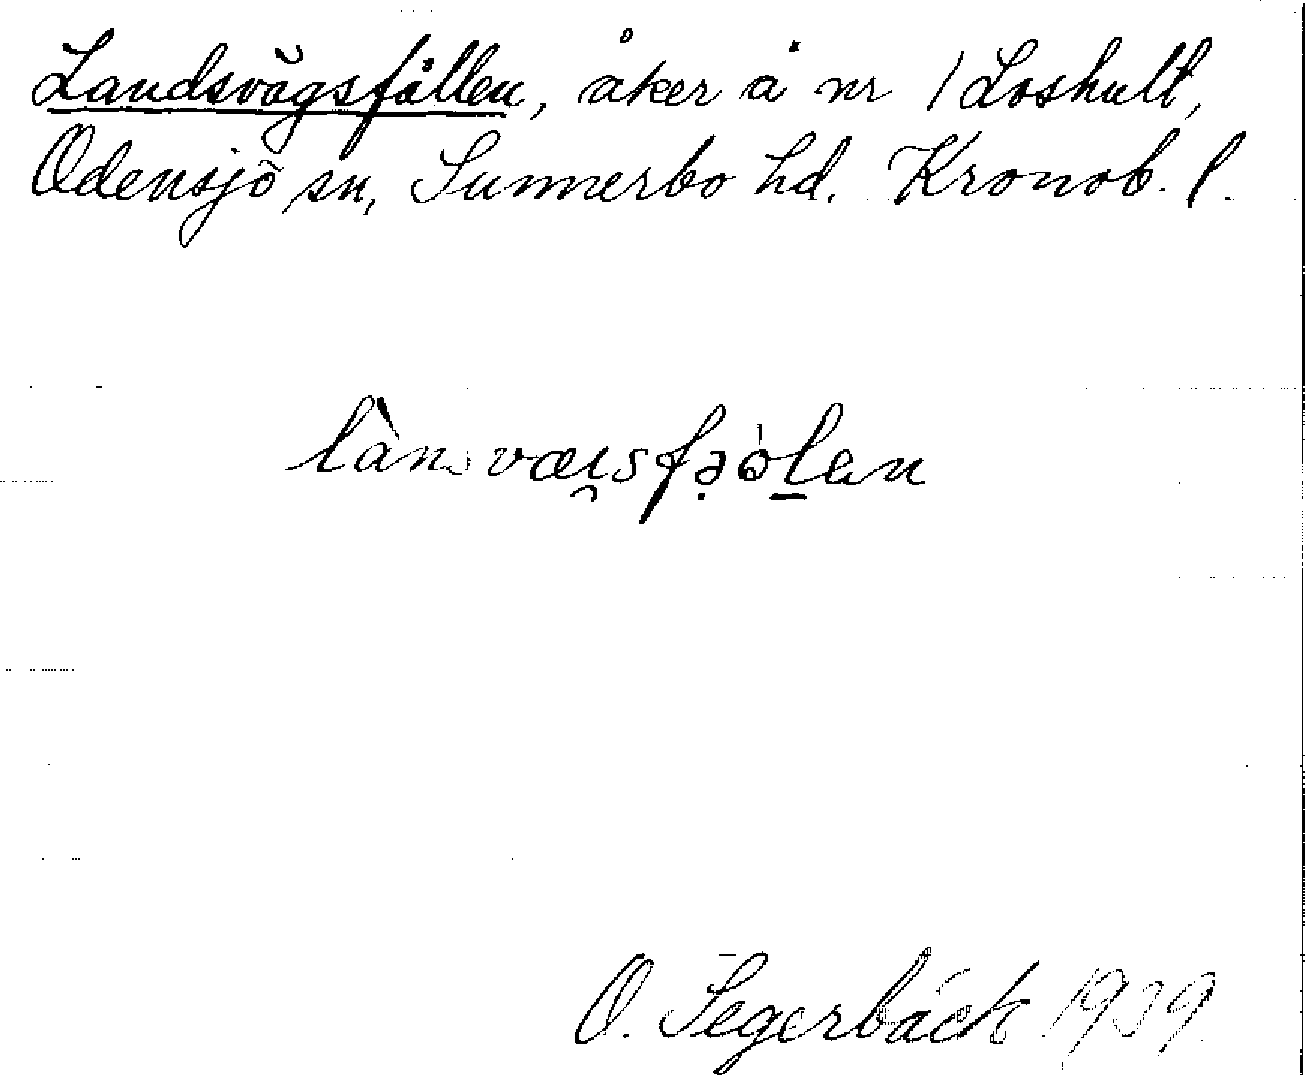 Landsvägsfållen, åker å nr 1 Loshult,
Odensjö sn, Sunnerbo hd. Kronob. l.
lànsvæi̯sfə̣ólen
O. Segerbäck 1939